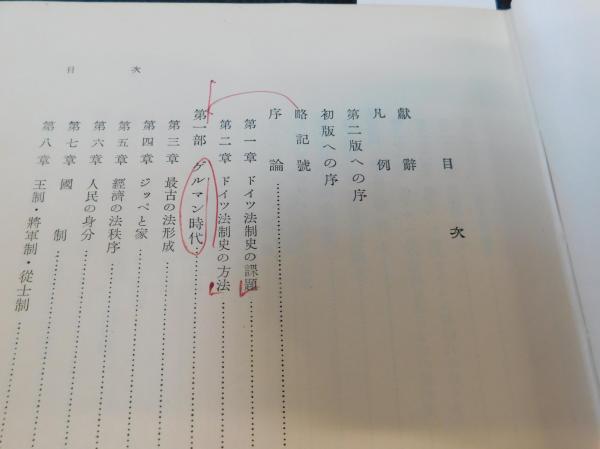 目次
獻辭
凡例
第二版への序
初版への序
略記號
序論
第一章 ドイツ法制史の課題
第二章 ドイツ法制史の方法
第一部 ゲルマン時代
第三章 最古の法形成
第四章 ジッペと家
第五章 經濟の法秩序
第六章 人民の身分
第七章 國制
第八章 王制・將軍制・從士制
目次